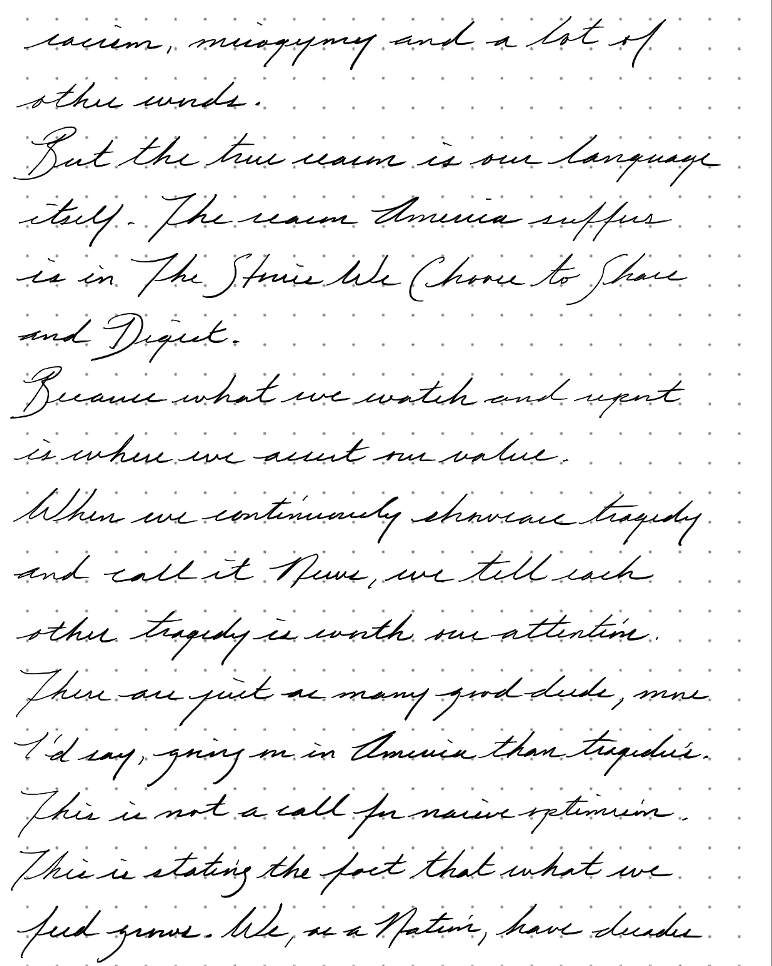 racism, misogyny and a lot of
other words.
But the true reason is our language
itself. The reason America suffers
is in The Stories We Choose to Share
and Digest.
Because what we watch and report
is where we assert our value.
When we continuously showcase tragedy
and call it News, we tell each
other tragedy is worth our attention.
There are just as many good deeds, more
I'd say, going on in America than tragedies.
This is not a call for naive optimism.
This is stating the fact that what we
feed grows. We, as a Nation, have decades